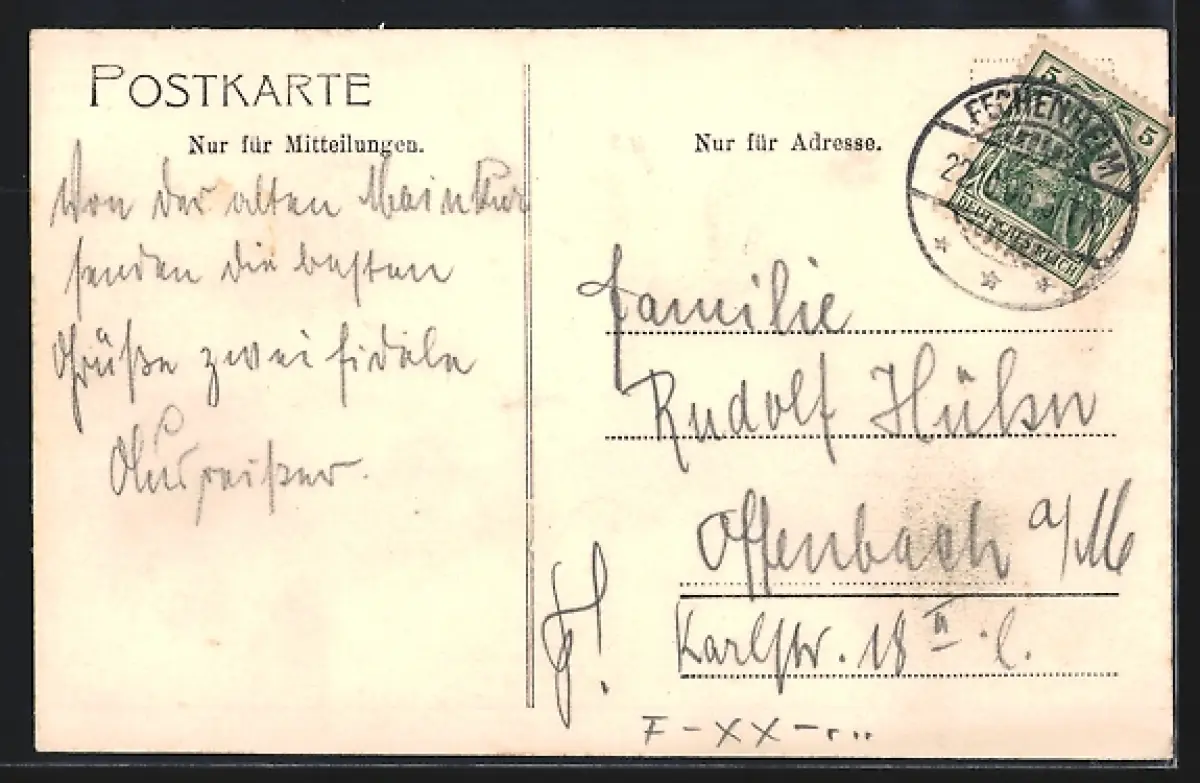 POSTKARTE
Nur für Mitteilungen.
Von der alten Mainkur
senden die besten
Grüße zwei fidele
Ausreißer.
Nur für Adresse.
5 5
FECHENHEIM
DEUTSCHES REICH
Familie
Rudolf Hühn
Offenbach a/M
Karlstr. 18 II l.
F-XX-